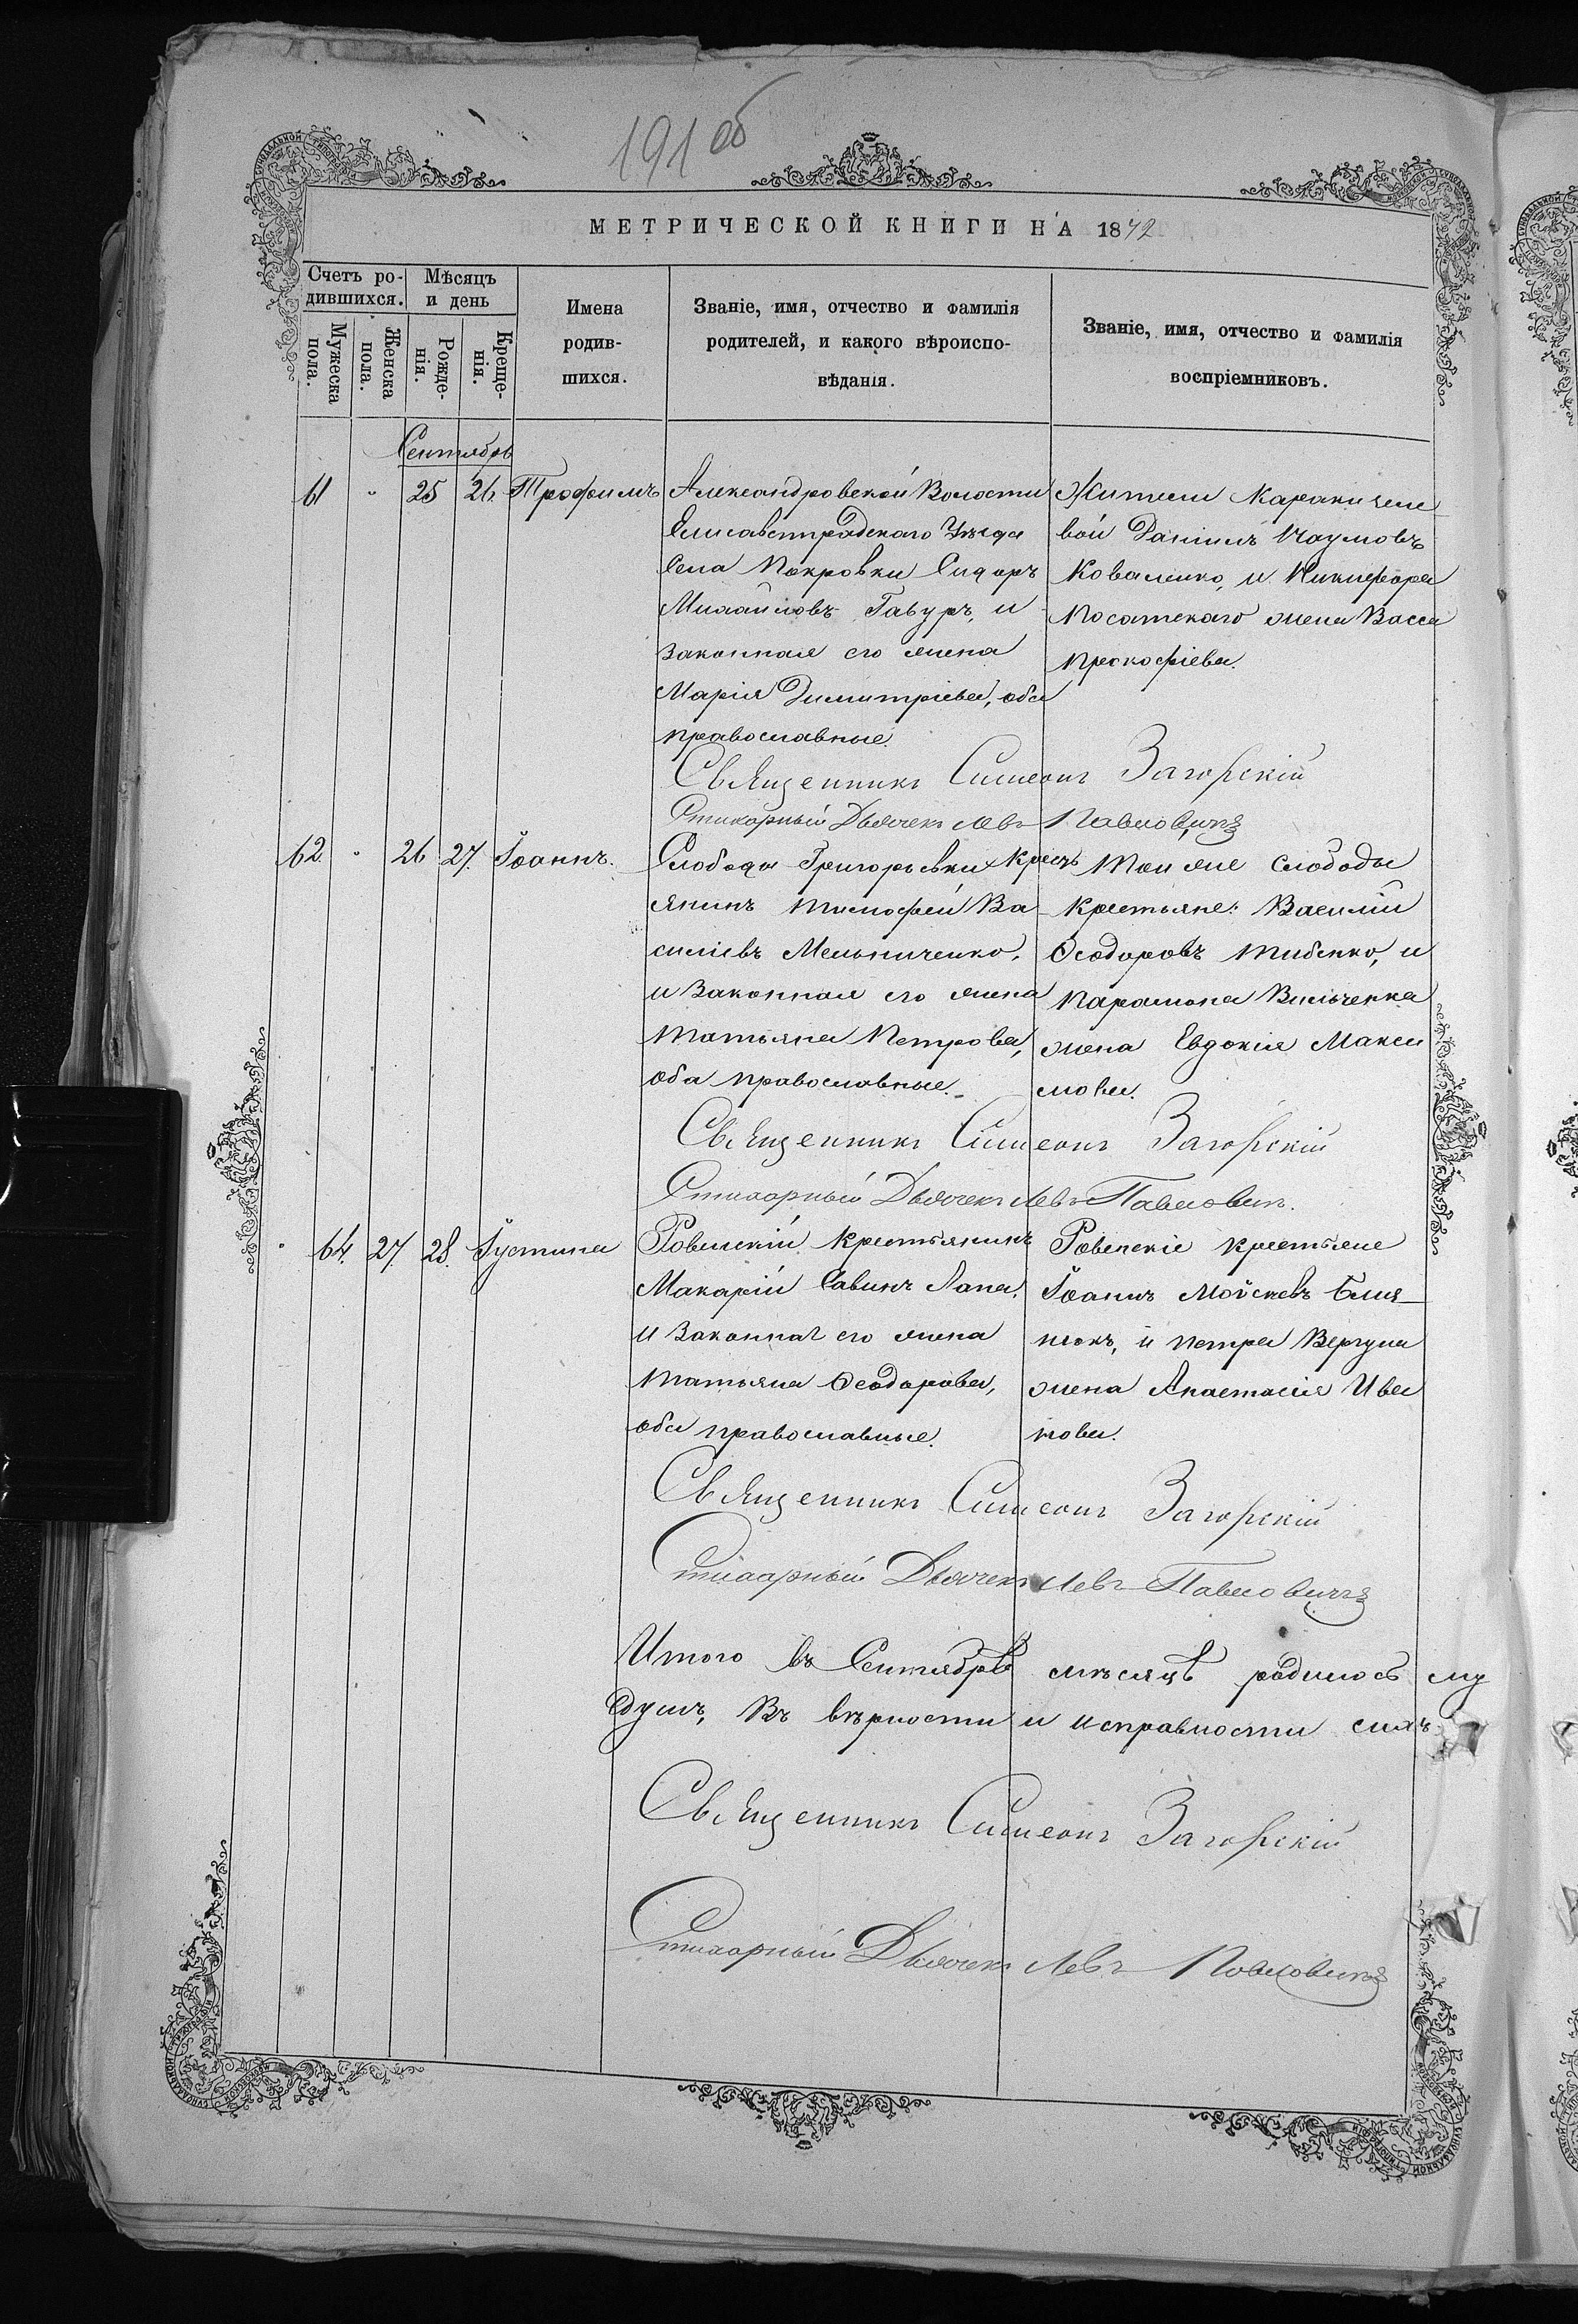 191 об
МЕТРИЧЕСКОЙ КНИГИ НА 1872
Счетъ ро-
дившихся.
Мѣсяцъ
и день
Мужеска
пола.
Женска
пола.
Рожде-
нія.
Креще-
нія.
Имена
родив-
шихся.
Званіе, имя, отчество и фамилія
родителей, и какого вѣроиспо-
вѣданія.
Званіе, имя, отчество и фамилія
воспріемниковъ.
Сентябрь
61 " 25 26 Трофимъ
Александровской Волости
Елисаветградскаго Уѣзда
Села Покровки Сидоръ
Михайловъ Гавуръ, и
законная его жена
Марія Димитріева, оба
православные.
Жители
вой Даніилъ Наумовъ
Коваленко, и Никифора
Посатскаго жена Васса
Прокофіева.
Священникъ Симеонъ Загорскій
Стихарный Дьячекъ Левъ Павловичъ
62. " 26 27. Іоаннъ.
Слободы Григорьевки Кресть
янинъ Тимофей Ва-
силіевъ Мельниченко,
и законная его жена
Татьяна Петрова,
оба православные.
Той же Слободы
Крестьяне: Василій
Ѳеодоровъ Тибенко, и
Парамона Вильченка
жена Евдокія Макси
мова.
Священникъ Симеонъ Загорскій
Стихарный Дьячекъ Левъ Павловичъ.
" 64. 27. 28. Іустина
Ровенскій Крестьянинъ
Макарій Савинъ Лапа,
и законная его жена
Татьяна Ѳеодорова,
оба православные.
Ровенскіе Крестьяне
Іоаннъ Мойсеевъ Близ-
нюкъ, и Петра Вергуна
жена Анастасія Ива
нова.
Священникъ Симеонъ Загорскій
Стихарный Дьячекъ Левъ Павловичъ
Итого въ Сентябрѣ мѣсяцѣ родилось му
душъ, Въ вѣрности и исправности сихъ
Священникъ Симеонъ Загорскій
Стихарный Дьячекъ Левъ Павловичъ